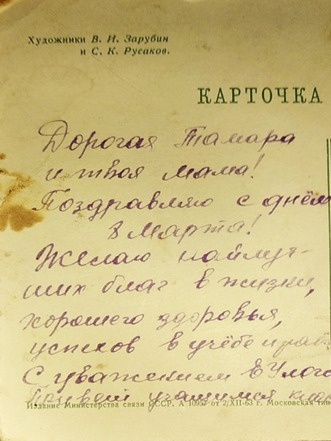 Художники В. И. Зарубин
и С. К. Русаков.
КАРТОЧКА
Дорогая Тамара
и твоя мама!
Поздравляю с днём
8 Марта!
Желаю наилуч-
ших благ в жизни,
хорошего здоровья,
успехов в учёбе и
С уважением
Издание Министерства связи СССР. А 10957 от 2/XII-63 г. Московская тип